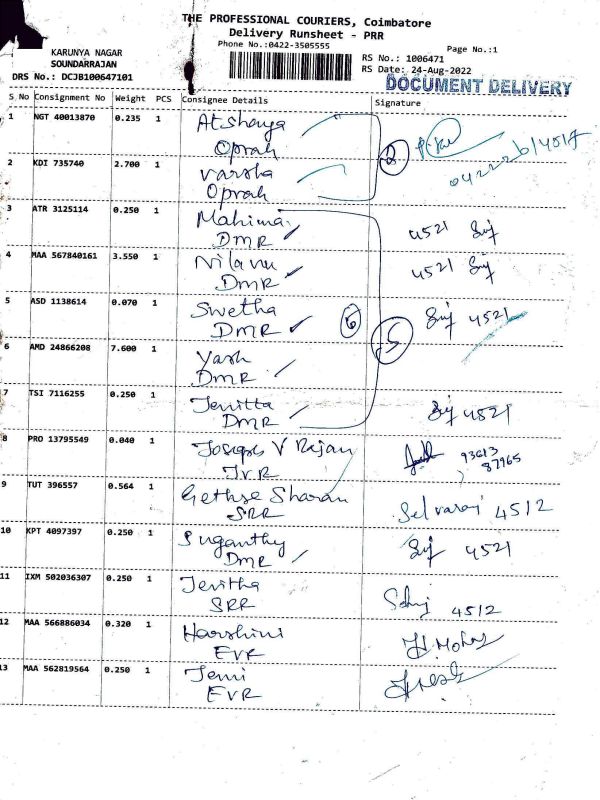 THE PROFESSIONAL COURIERS, Coimbatore
Delivery Runsheet - PRR
Phone No.:0422-3505555
Page No.:1
KARUNYA NAGAR
SOUNDARRAJAN
RS No.: 1006471
DRS No.: DCJB100647101
RS Date: 24-Aug-2022
DOCUMENT DELIVERY
S No Consignment No Weight PCS Consignee Details Signature
1 NGT 40013870 0.235 1 Atshaya
Oprah
2 KDI 735740 2.700 1 Varsha
Oprah
3 ATR 3125114 0.250 1 Mahima
DMR 4521
4 MAA 567840161 3.550 1 Nilavu
DMR 4521
5 ASD 1138614 0.070 1 Swetha
DMR ✓ 6 5 4521
6 AMD 24866208 7.600 1 Yash
DMR
7 TSI 7116255 0.250 1 Jenitta
DMR 4521
8 PRO 13795549 0.040 1 Joseph V Rajan 93613
JVR 87965
9 TUT 396557 0.564 1 Gethse Sharan
SRR Selvaraj 4512
10 KPT 4097397 0.250 1 Suganthy
DMR 4521
11 IXM 502036307 0.250 1 Jenitha
SRR 4512
12 MAA 566886034 0.320 1 Harshini
EVR
13 MAA 562819564 0.250 1 Jemi
EVR